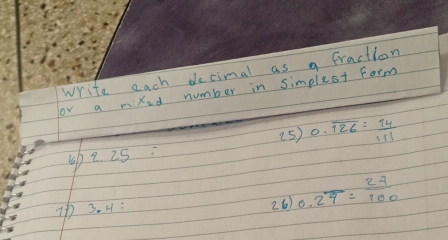 Write each decimal as a fraction
or a mixed number in simplest form
16) 2.25 :
25) 0.\overline{126} = 14/111
17) 3.4 :
26) 0.2\overline{7} = 27/100